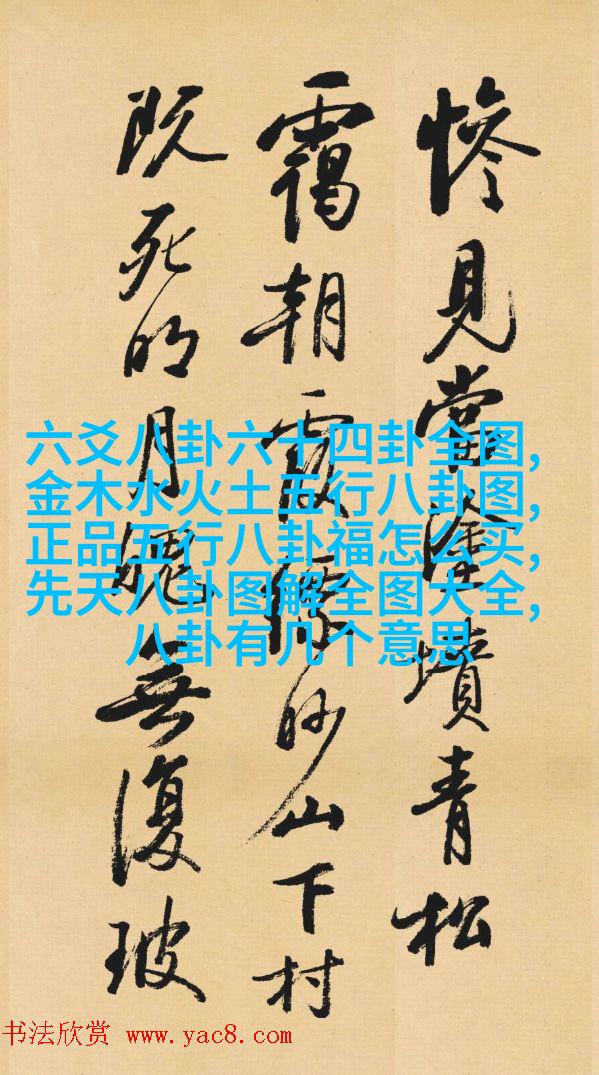 惨見當塗墳青松
靄朝霞縹眇山下村
既死明月魄無復玻
六爻八卦六十四卦全图,
金木水火土五行八卦图,
正品五行八卦福怎么买,
先天八卦图解全图大全,
八卦有几个意思
书法欣赏 www.yac8.com